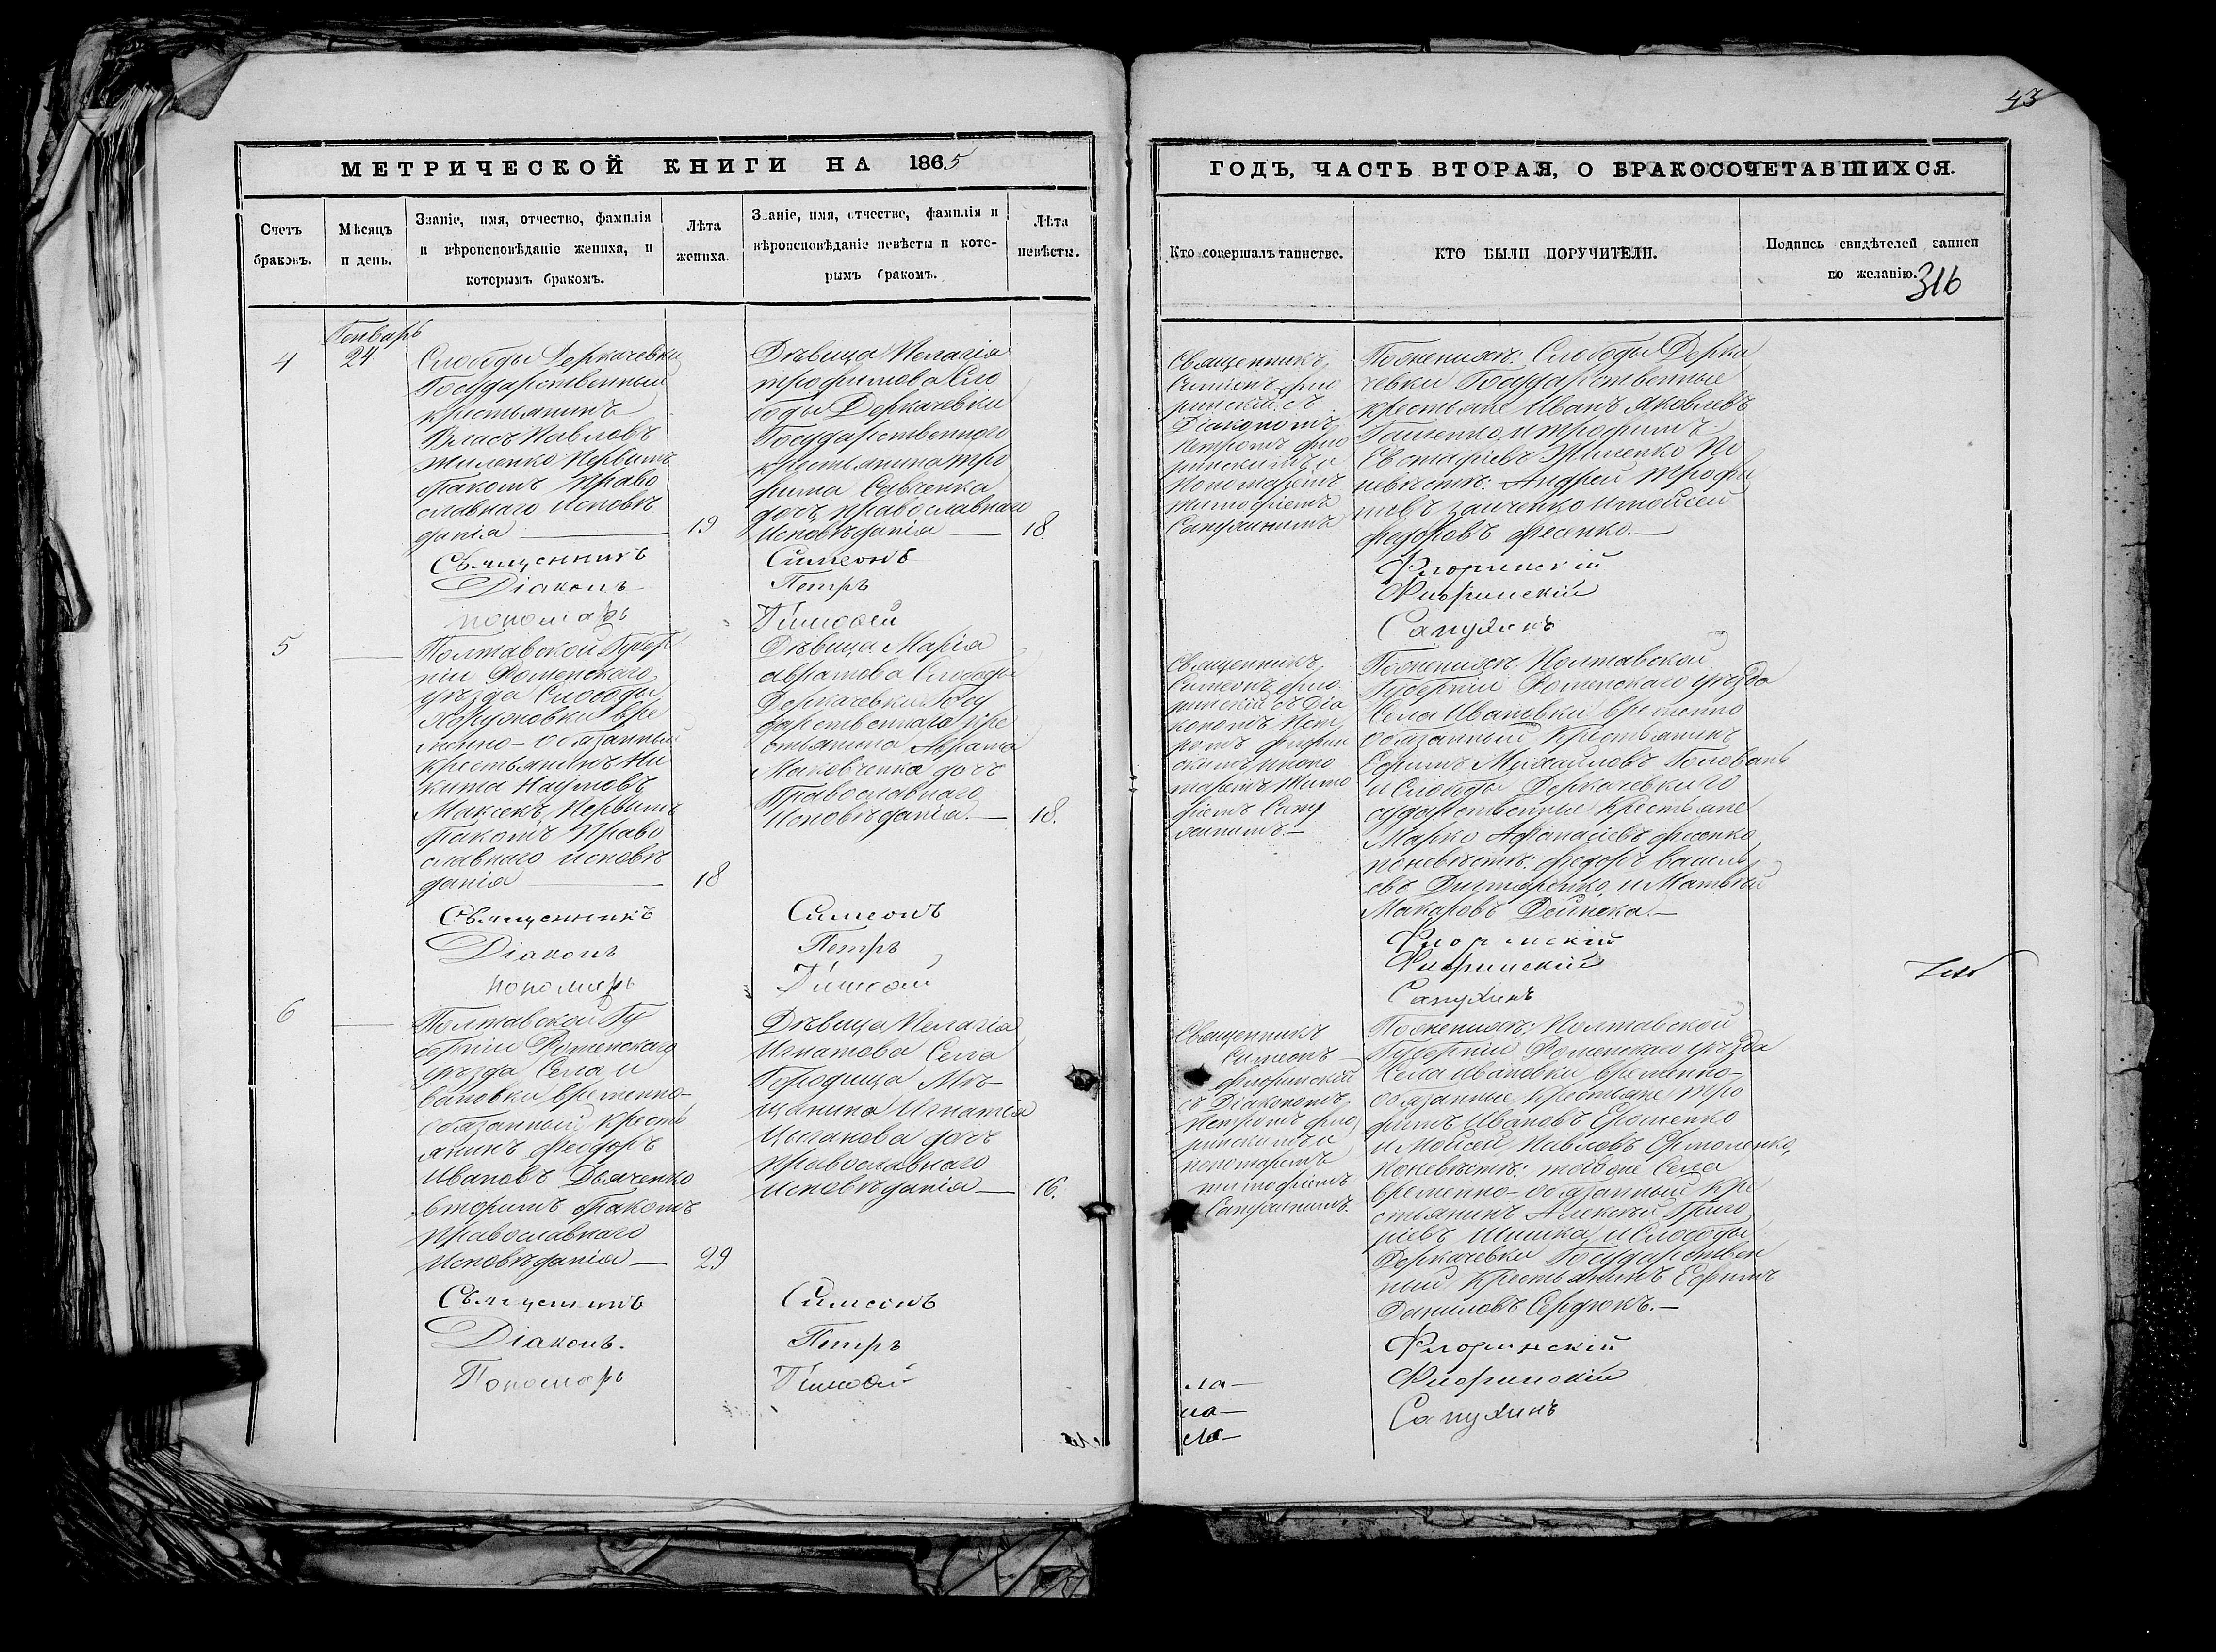 43
МЕТРИЧЕСКОЙ КНИГИ НА 1865
ГОДЪ, ЧАСТЬ ВТОРАЯ, О БРАКОСОЧЕТАВШИХСЯ.
Счетъ
браковъ.
Мѣсяцъ
и день.
Званіе, имя, отчество, фамилія
и вѣроисповѣданіе жениха, и
которымъ бракомъ.
Лѣта
жениха.
Званіе, имя, отчество, фамилія и
вѣроисповѣданіе невѣсты и кото-
рымъ бракомъ.
Лѣта
невѣсты.
Кто совершалъ таинство.
КТО БЫЛИ ПОРУЧИТЕЛИ.
Подпись свидѣтелей записи
по желанію.
316
4
Генварь
24
Слободы Деркачевки
Государственный
крестьянинъ
Власъ Павловъ
Жиленко Первымъ
бракомъ Право
славнаго исповѣ
данія
19
Дѣвица Пелагія
трофимова Сло
боды Деркачевки
Государственнаго
крестьянина Тро
фима Савченка
дочь, православнаго
Исповѣданія
18.
Священникъ
Симеонъ Фло
ринскій съ
Діакономъ
Петромъ Фло
ринскимъ и
Пономаремъ
Тимофіемъ
Сапухинымъ
Поженихѣ: Слободы Дерка
чевки Государственные
крестьяне Иванъ Яковлевъ
и трофимъ
Евстафіевъ Жиленко По
невѣстѣ: Андрей Трофи
мовъ Заиченко и Мойсей
Федоровъ Фесенко.
Священникъ Симеонъ Флоринскій
Діаконъ Петръ Флоринскій
пономарь Тимофей Сапухинъ
5
Полтавской Губер
ніи Роменскаго
уѣзда Слободы
Коружовки вре
менно-обязанный
крестьянинъ Ни
кита Наумовъ
Максекъ, Первымъ
бракомъ Право
славнаго исповѣ
данія
18
Дѣвица Марія
аврамова Слободы
Деркачевки Госу
дарственнаго кре
стьянина Аврама
Маковченка дочь
Православнаго
Исповѣданія.
18.
Священникъ
Симеонъ Фло
ринскій съ Діа
кономъ Пет
ромъ Флорин
скимъ и поно
маремъ Тимо
фіемъ Сапу
хинымъ
Поженихѣ: Полтавской
Губерніи Роменскаго уѣзда
Села Ивановки временно
обязанный крестьянинъ
Ефимъ Михайловъ Головань
и Слободы Деркачевки Го
сударственные крестьяне
Марко Афанасіевъ Фесенко
поневѣстѣ: Федоръ Василь
евъ Дитяренко, и Матвѣй
Макаровъ Дейнека.
Священникъ Симеонъ Флоринскій
Діаконъ Петръ Флоринскій
пономарь Тимофей Сапухинъ
6
Полтавской Гу
берніи Роменскаго
уѣзда Села И
вановки временно-
обязанный кресть
янинъ Феодоръ
Ивановъ Дьяченко
вторымъ бракомъ
православнаго
Исповѣданія
29
Дѣвица Пелагія
Игнатова Села
Городища Мѣ-
щанина Игнатія
Цыганова дочь
православнаго
Исповѣданія
16.
Священникъ
Симеонъ
Флоринскій
съ Діакономъ
Петромъ Фло
ринскимъ и
пономаремъ
тимофіемъ
Сапухинымъ.
Поженихѣ: Полтавской
Губерніи Роменскаго уѣзда
Села Ивановки временно-
обязанные крестьяне Тро
фимъ Ивановъ Ерошенко
и Мойсей Павловъ Ормоленко,
поневѣстѣ: тойже Села
временно-обязанный кре
стьянинъ Алексѣй Григо
ріевъ Шишка, и Слободы
Деркачевки Государствен
ный крестьянинъ Ефимъ
Даниловъ Сердюкъ.
Священникъ Симеонъ Флоринскій
Діаконъ. Петръ Флоринскій
Пономарь Тимофей Сапухинъ